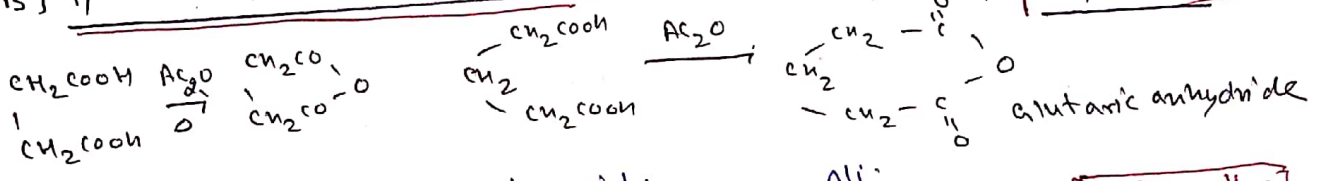 CH2COOH Ac2O CH2CO
CH2COOH CH2CO O
CH2COOH Ac2O CH2 - C = O
CH2 CH2 O
CH2COOH CH2 - C = O Glutaric anhydride